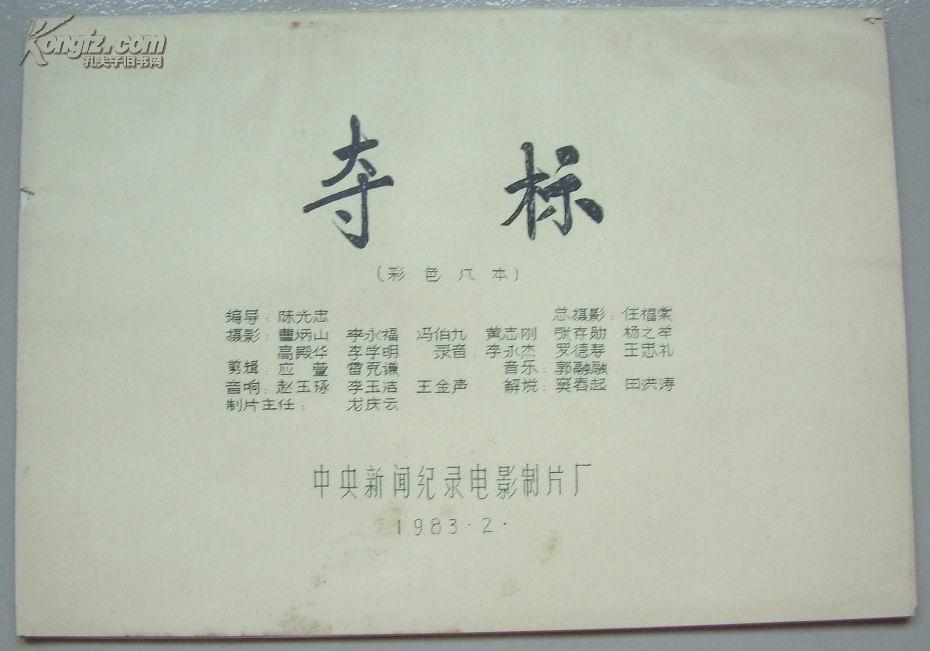 Kongfz.com
孔夫子旧书网
夺标
(彩色八本)
编导：陈光忠 总摄影：任福棠
摄影：曹炳山 李永福 冯伯九 黄志刚 张存勋 杨之举
高殿华 李学明 录音：李永杰 罗德寿 王忠礼
剪辑：应莹 雷克谦 音乐：郭融融
音响：赵玉琢 李玉洁 王金声 解说：窦春起 田洪涛
制片主任： 龙庆云
中央新闻纪录电影制片厂
1983·2·